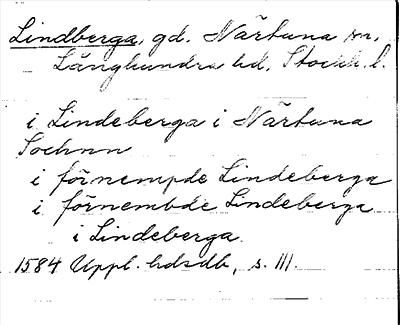 Lindberga, gd. Närtuna sn,
Långhundra hd, Stockh. l.
i Lindeberga i Närtuna
Sochnn
i förnempde Lindeberga
i förnembde Lindeberga
i Lindeberga
1584 Uppl. hdsdb, s. 111.